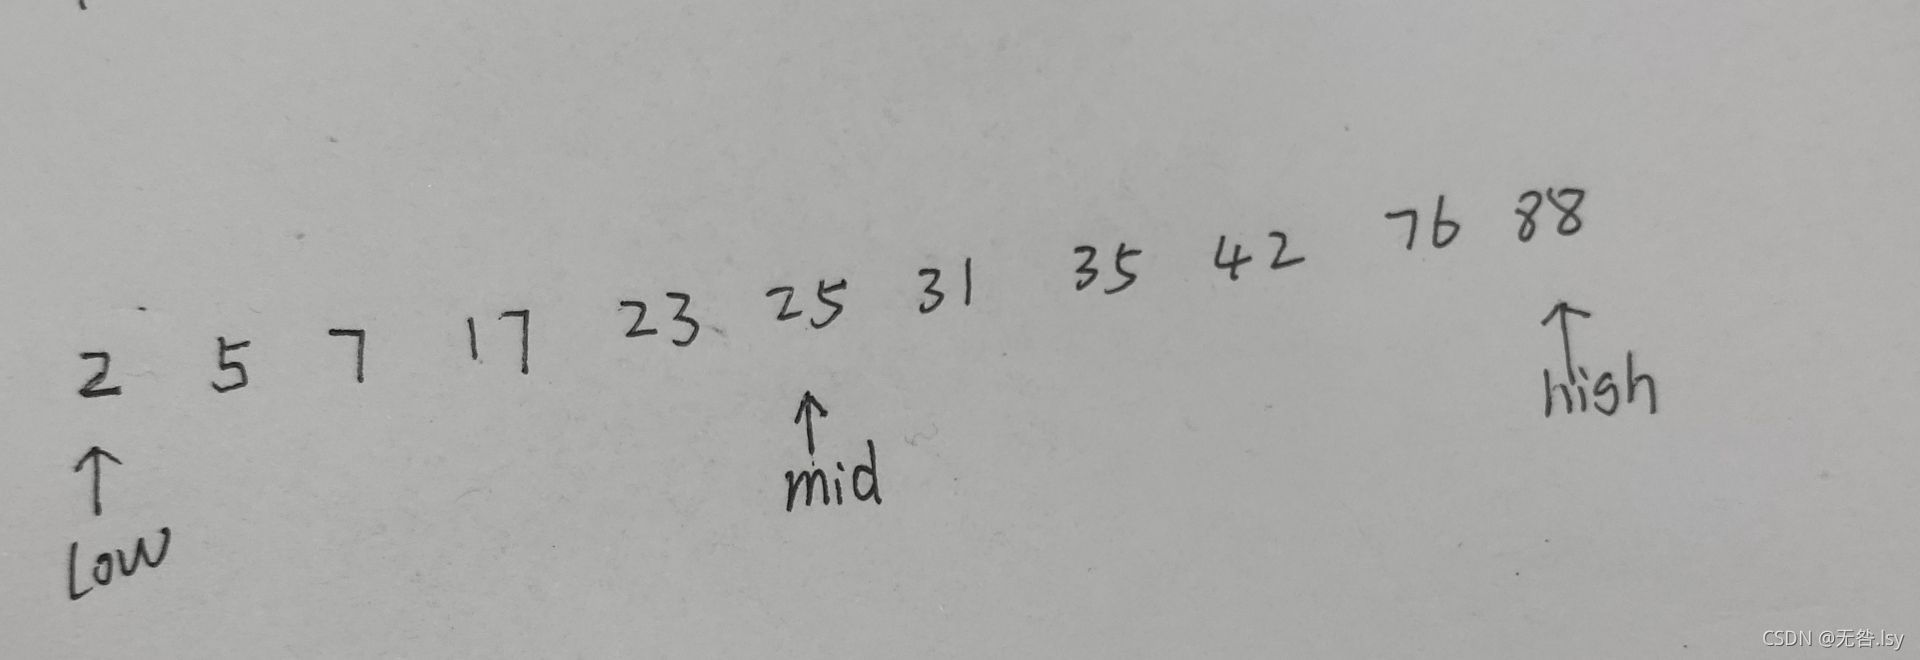 2 5 7 17 23 25 31 35 42 76 88
low mid high
CSDN @无咎.lsy